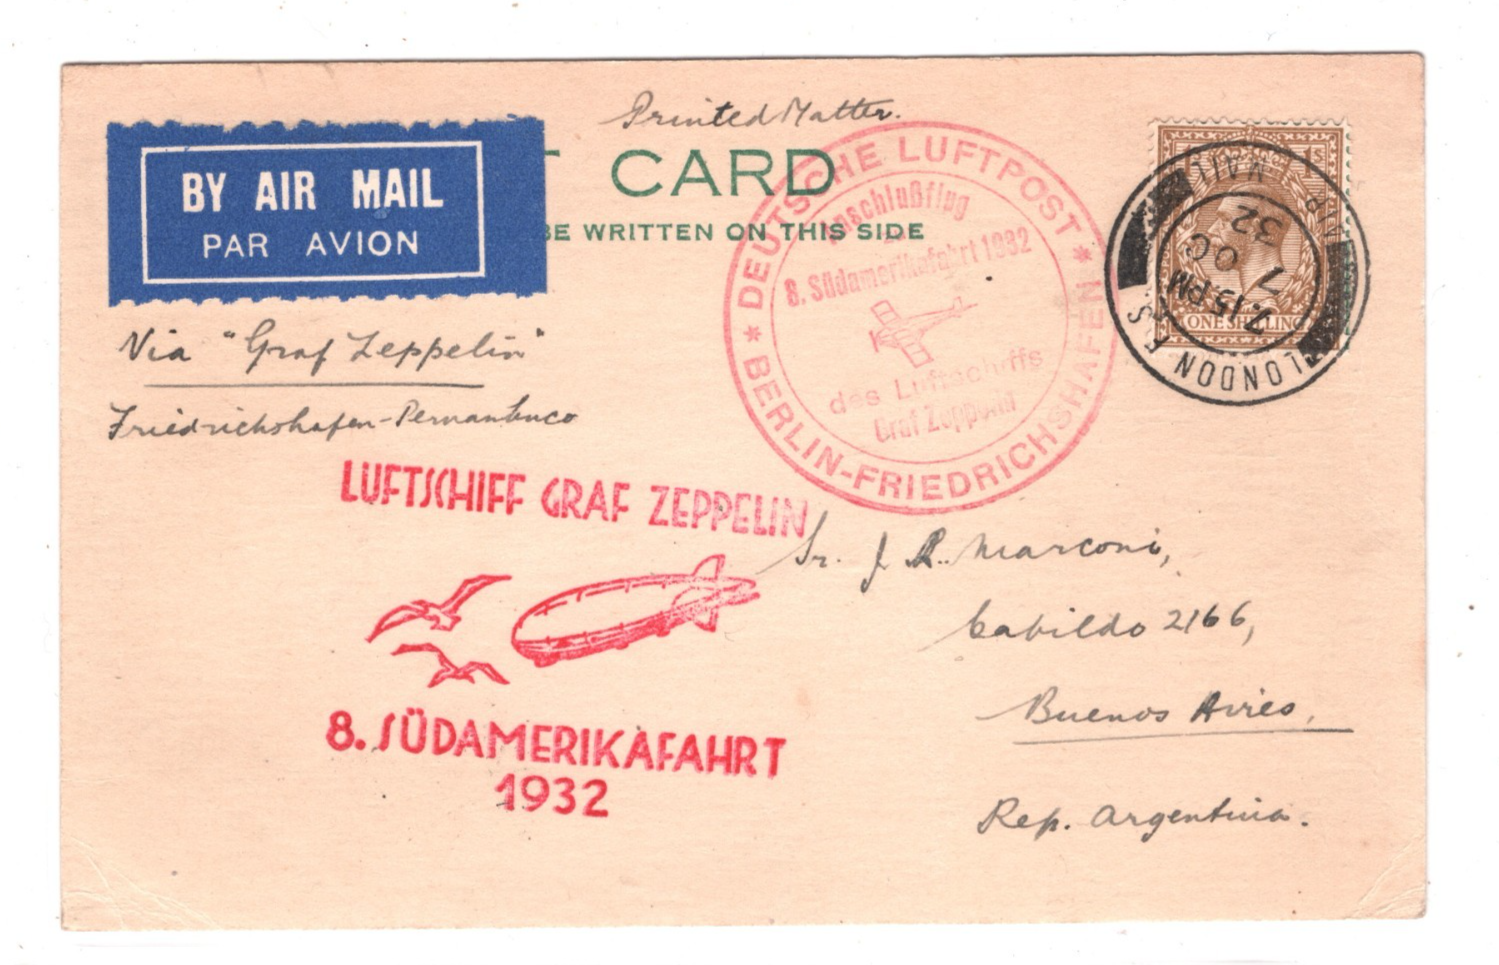 Printed Matter.
T CARD
BE WRITTEN ON THIS SIDE
BY AIR MAIL
PAR AVION
Via "Graf Zeppelin"
Friedrichshafen-Pernambuco
DEUTSCHE LUFTPOST
Anschlußflug
zur
8. Südamerikafahrt 1932
des Luftschiffs
Graf Zeppelin
* BERLIN-FRIEDRICHSHAFEN *
1S
ONE SHILLING
AIR MAIL
7.15 PM
7 OC
32
LONDON F.S.
LUFTSCHIFF GRAF ZEPPELIN
8. SÜDAMERIKAFAHRT
1932
Sr. J. R. Marconi,
Cabildo 2166,
Buenos Aires,
Rep. Argentina.